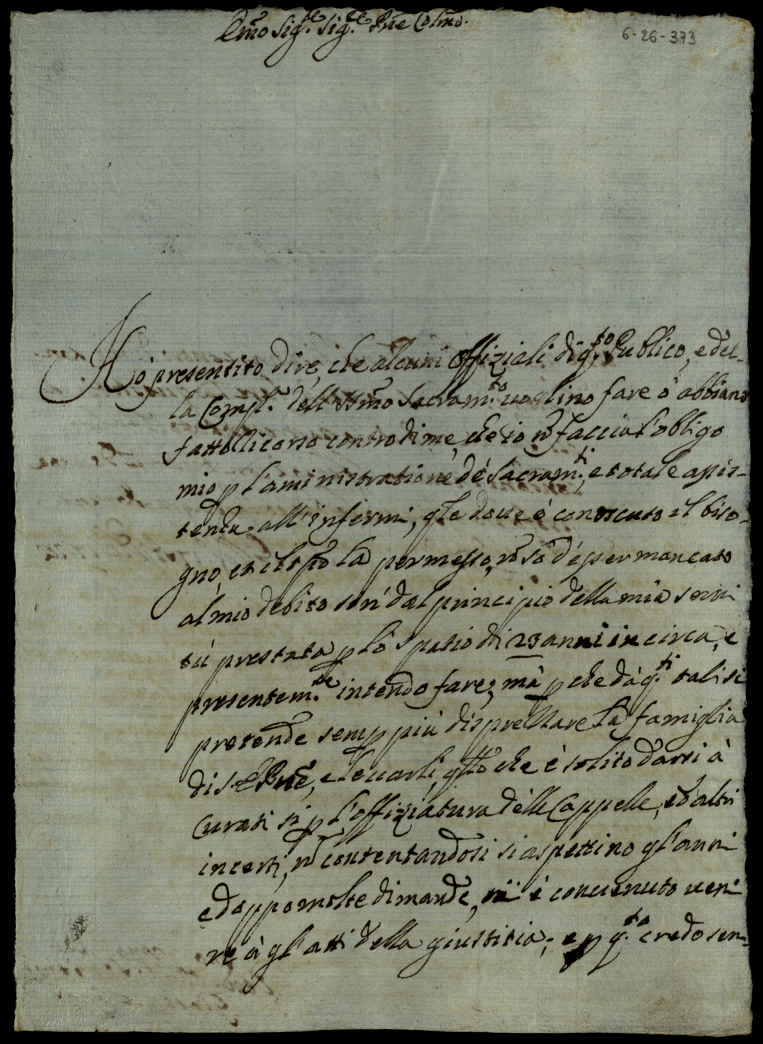 Emo Sig.re Sig.re Pne Colmo.
6-26-373
Hò presentito dire, che alcuni Offiziali di q.to Publico, e del-
la Comp.a dell SSmo Sacram.to voglino fare ò abbiano
fatto llicorso contro di me, che io nō faccia l'obligo
mio p l'aministratione de Sacram.ti, e totale assis-
tenza all'infermi, q̃le doue è conoscuto il biso-
gno, et il tpõ la permesso, nō so d'esser mancato
al mio debito sin' dal principio della mia serui
tù prestata p lo spatio di 23 anni in circa, e
presentem.te intendo fare; mà p che da q.ti tali si
pretende semp più disprezzare la famiglia
di S. Pnē, e leuarli q̃llo che è solito darsi à
Curati si p l'offiziatura delle Cappelle, ed altri
incerti, nō contentandosi si aspettino gl'anni
e doppo molte dimande, mi è conuenuto ueni
re à gl'atti della giustitia; e p q.to credo sen-